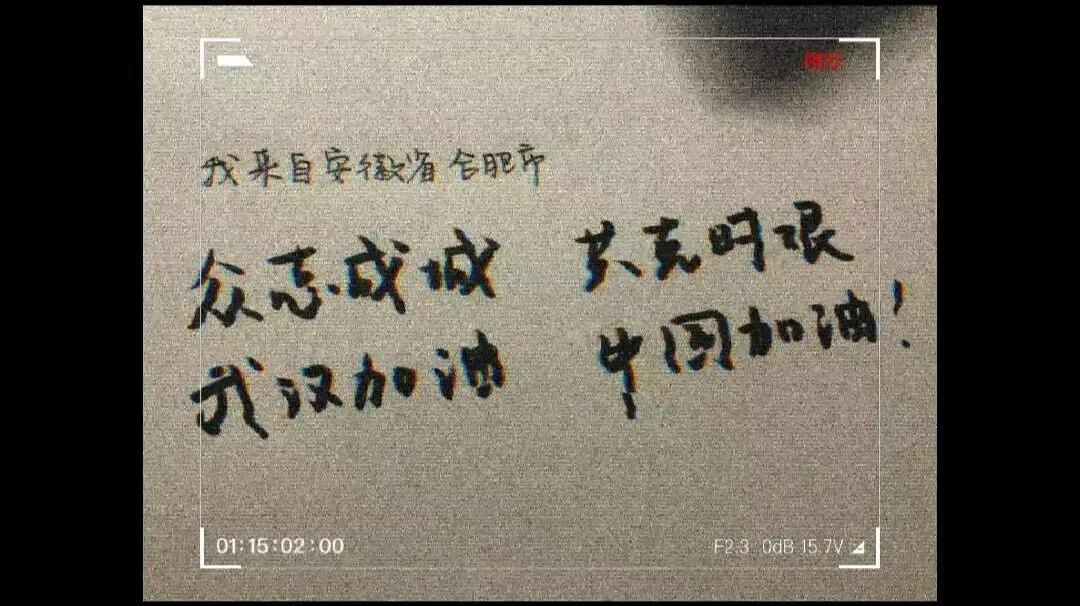 REC
我来自安徽省合肥市
众志成城 共克时艰
武汉加油 中国加油!
01:15:02:00 F2.3 0dB 15.7V